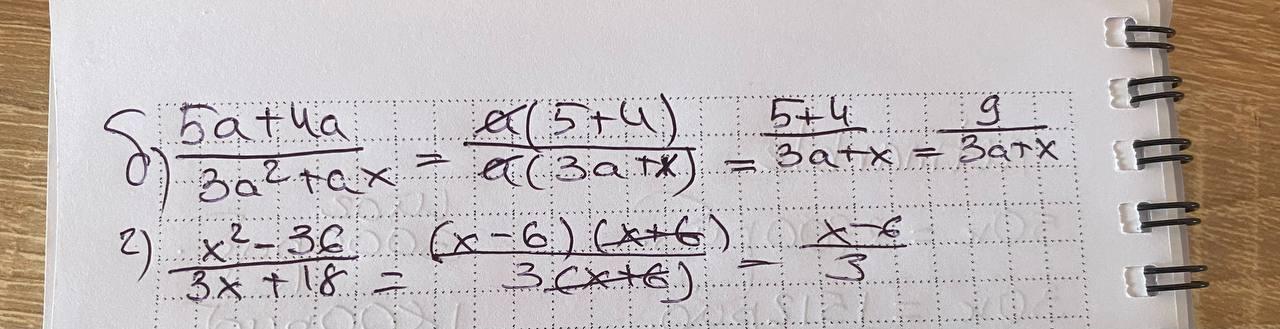 б) (5a+4a)/(3a²+ax) = (a(5+4))/(a(3a+x)) = (5+4)/(3a+x) = 9/(3a+x)
г) (x²-36)/(3x+18) = ((x-6)(x+6))/(3(x+6)) = (x-6)/3